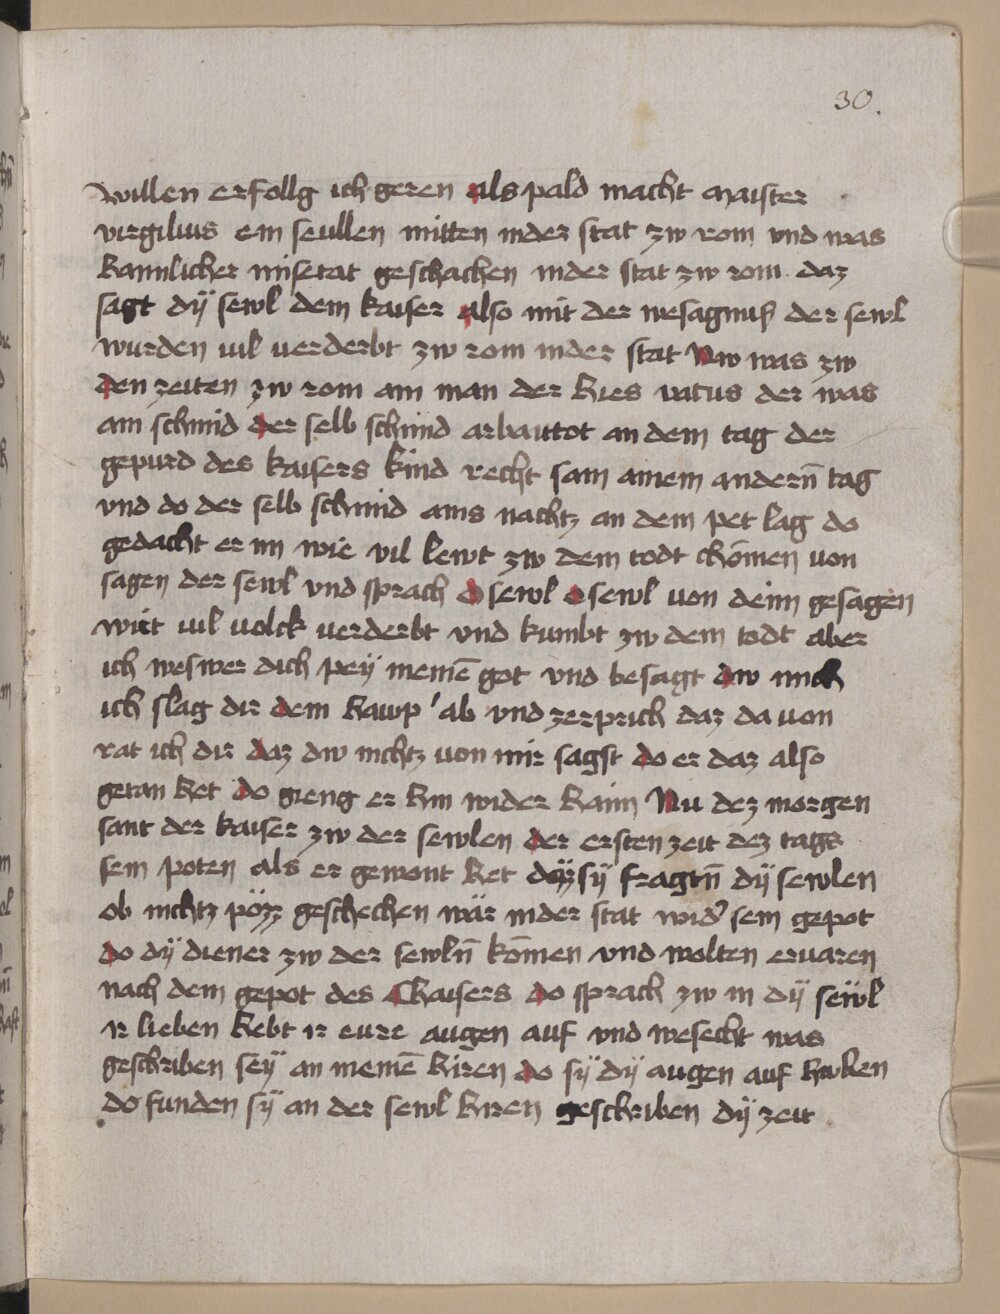 30.
willen erfollg ich geren als pald macht maister
virgilius ein seullen mitten in der stat zw rom vnd was
hannlicher misetat geschachen in der stat zw rom daz
sagt dÿ sewl dem kaiser also mit der wesagnuß der sewl
wurden uil uerderbt zw rom in der stat Nw was zw
den zeiten zw rom ain man der hies vatus der was
ain schmid der selb schmid arbautot an dem tag der
gepurd des kaisers kind recht sam ainem andern̄ tag
vnd do der selb schmid ains nachtz an dem pet lag do
gedacht er im wie vil lewt zw dem todt chōmen von
sagen der sewl vnd sprach O sewl O sewl von deim gesagen
wirt uil uolck uerderbt vnd kumbt zw dem todt aber
ich weswer dich peÿ meinē got vnd besagt dw mich
ich slag dir dein hawp ab vnd zerprich daz da uon
rat ich dir daz dw nichtz uon mir sagst do er daz also
getan het do gieng er hin wider haim Nu dez morgen
sant der kaiser zw der sewlen der ersten zeit dez tags
sein poten als er gewont het daz sÿ fragtn̄ dÿ sewlen
ob nichtz pözz geschechen wär in der stat wid' sein gepot
do dÿ diener zw der sewln̄ kōmen vnd wolten eruaren
nach dem gepot des Chaisers do sprach zw in dÿ seẅl
ir lieben hebt ir eure augen auf vnd wesecht was
geschriben seÿ an meinē hiren do sÿ dÿ augen auf huben
do funden sÿ an der sewl hiren geschriben dÿ zeit